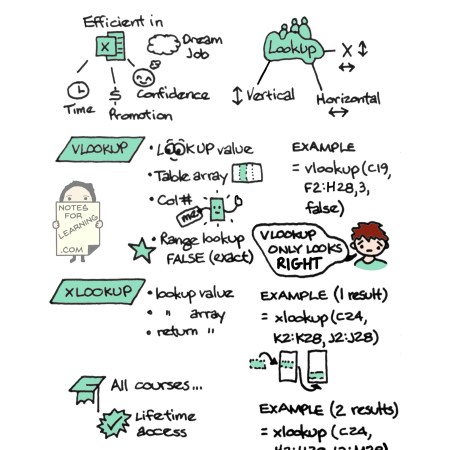 Efficient in
X
Dream
Job
Time
$
Promotion
Confidence
Lookup
X
Vertical
Horizontal
VLOOKUP
• LOOKUP value
• Table array
• Col #
me?
• Range lookup
FALSE (exact)
EXAMPLE
= vlookup(C19,
F2:H28,3,
false)
NOTES
FOR
LEARNING
.COM
VLOOKUP
ONLY LOOKS
RIGHT
XLOOKUP
• lookup value
• " array
• return "
EXAMPLE (1 result)
= xlookup(C24,
K2:K28, J2:J28)
All courses...
Lifetime
access
EXAMPLE (2 results)
= xlookup(C24,